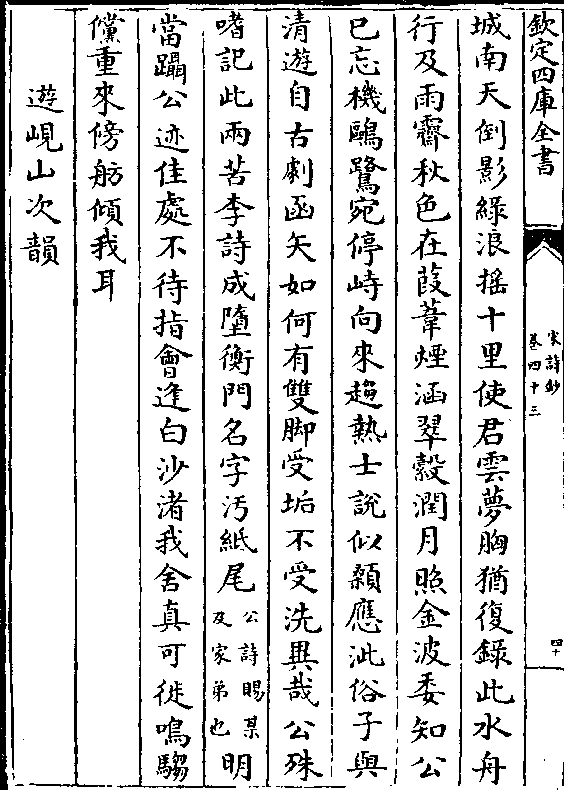 欽定四庫全書
宋詩鈔
卷四十三
四十
城南天倒影綠浪揺十里使君雲夢胸猶復錄此水舟
行及雨霽秋色在葭葦煙涵翠縠潤月照金波委知公
已忘機鷗鷺宛停峙向來趨熱士說似顙應泚俗子與
清遊自古劇函矢如何有雙脚受垢不受洗異哉公殊
嗜記此兩苦李詩成墮衡門名字汚紙尾公詩賜某及家弟也明
當躡公迹佳處不待指會逢白沙渚我舍真可徙鳴騶
儻重來傍舫傾我耳
遊峴山次韻